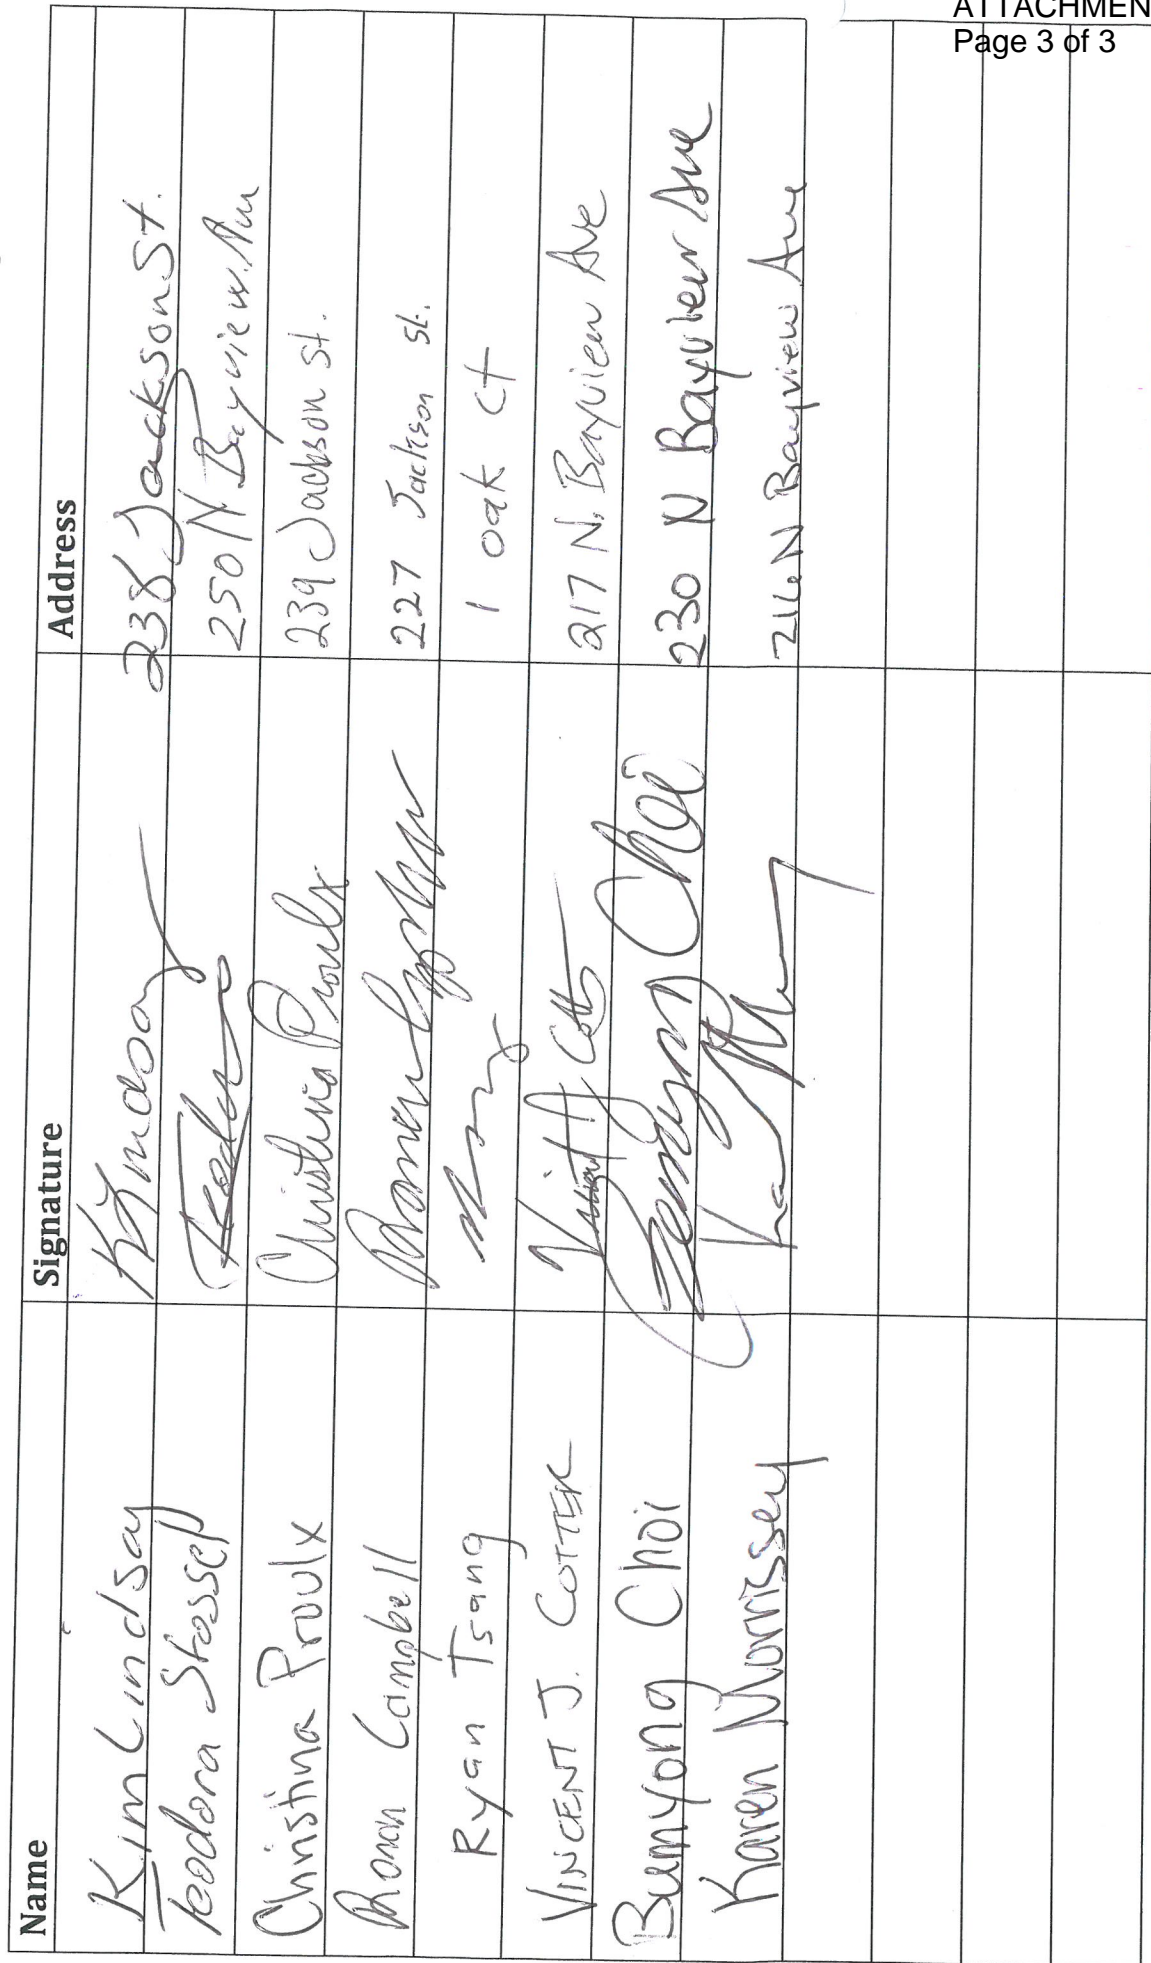 ATTACHMEN
Page 3 of 3
Name Signature Address
Kim Lindsay 238 Jackson St.
Teodora Stossel 250 N Bayview Ave
Christina Proulx Christina Proulx 239 Jackson St.
Ronan Campbell 227 Jackson St.
Ryan Tsang 1 oak ct
VINCENT J. COTTER 217 N. Bayview Ave
Bumyong Choi Choi 230 N Bayview Ave
Karen Morrissey N Bayview Ave